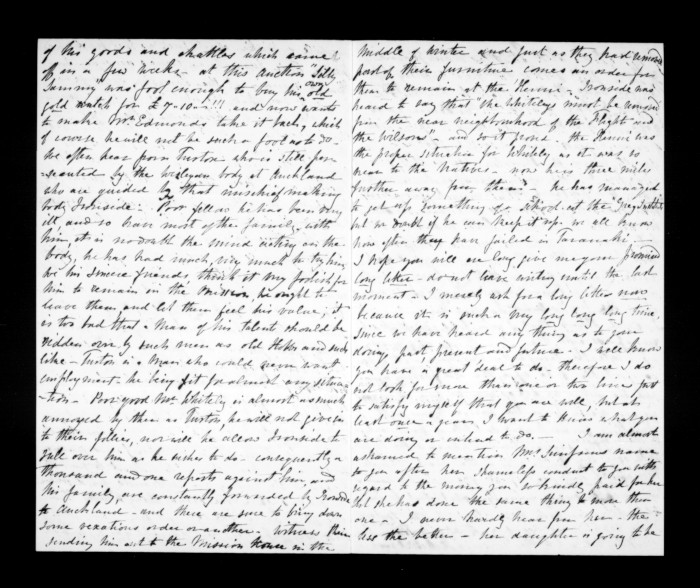 of his goods and chattles which came
off in a few weeks - at this auction
Sammy was fool enough to buy his own old
gold watch for £7-10-!!! and now wants
to make Mr Edmonds take it back, which
of course he will not be such a fool as to do -
We often hear from Turton who is still per
-secuted by the wesleyan body at Auckland
who are guided by that mischief making
body Ironside. Poor fellow he has been very
ill, and so have most of the family, with
him, it is no doubt the mind acting on the
body, he has had much, very much to try him,
we his sincere friends, think it very foolish for
him to remain in the Mission, he ought to
leave them and let them feel his value; it
is too bad that a Man of his talent should be
ridden over by such men as old and such
like - Turton is a Man who could never want
employment - he being fit for almost any situa
-tion - Poor good Mr Whitely is almost as much
annoyed by them as Turton, he will not give in
to their follies, nor will he allow Ironside to
rule over him as he wishes to do - consequently a
thousand and one reports against him, and
his family, are constantly forwarded by Ironside
to Auckland - and these are sure to bring down
some vexatious order or another - witness their
sending him out to the Mission House in the
middle of winter and just as they had removed
part of their furniture comes an order for
them to remain at the Henui - Ironside was
heard to say that "the Whitelys must be removed
from the near neighbourhood of the Flight and
the Wilsons" - and so it proved - the Henui was
the proper situation for Whitely as it was so
near to the Natives - now he is three miles
further away from them" - he has managed
to get up something of a School at the Grey Institute
but we doubt if he can keep it up - we all know
how often they have failed in Taranaki -
I hope you will ere long give me your promised
long letter - do not leave writing until the last
moment - I merely ask for a long letter now
because it is such a very long long long time
since we have heard any thing as to your
doings past present and future - I well know
you have a great deal to do - therefore I do
not look for more than one or two lines just
to satisfy myself that you are well, but at
least once a year, I want to know what you
are doing or intend to do. — I am almost
ashamed to mention Mrs name
to you after her shameless conduct to you with
regard to the money you so kindly paid for her
but she has done the same thing to more than
one - I never hardly hear from her - the
less the better - her daughter is going to be